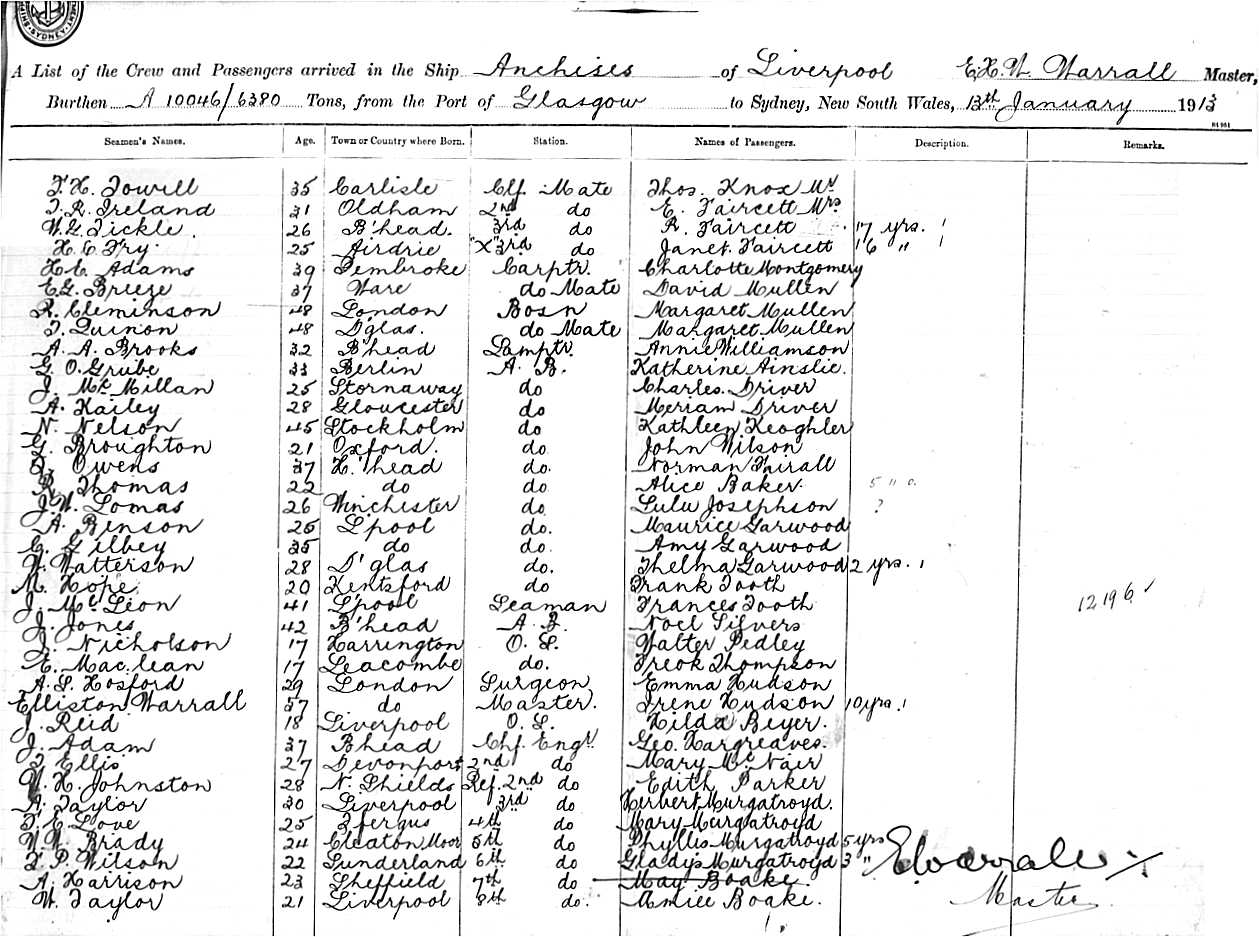 SYDNEY
A List of the Crew and Passengers arrived in the Ship Anchises of Liverpool E.H.W. Warrall Master,
Burthen A 10046/6380 Tons, from the Port of Glasgow to Sydney, New South Wales, 13th January 1913
Seamen's Names. Age. Town or Country where Born. Station. Names of Passengers. Description. Remarks.
T. H. Towill 35 Carlisle Chf. Mate Thos. Knox Mr
T. R. Ireland 31 Oldham 2nd do E. Faircett Mrs
W. G. Tickle 26 B'head. 3rd do R. Faircett 17 yrs. 1
H. C. Fry 25 Airdrie "X" 3rd do Janet Faircett 16 " 1
H. C. Adams 39 Pembroke Carptr. Charlotte Montgomery
E. G. Breeze 37 Ware do Mate David Mullen
R. Cleminson 48 London Bosn Margaret Mullen
T. Quinon 48 D'glas. do Mate Margaret Mullen
A. A. Brooks 32 B'head Lamptr. Annie Williamson
G. O. Grube 33 Berlin A. B. Katherine Ainslie.
J. McMillan 25 Stornaway do Charles. Driver
A. Hailey 28 Gloucester do Meriam Driver
N. Nelson 45 Stockholm do Kathleen Keoghler
G. Broughton 21 Oxford. do John Wilson
Owens 37 H.'head do. Norman Fairall
R. Thomas 22 do do Alice Baker. 5 " 0.
J. W. Lomas 26 Winchester do Lulu Josephson ?
A. Benson 25 L'pool do. Maurice Garwood
C. Gilbey 35 do do. Amy Garwood
W. Watterson 28 D'glas do. Thelma Garwood 2 yrs. 1
M. Hope 20 Kentsford do Frank Tooth
J. McLeon 41 L'pool Seaman Frances Tooth 12196 ✓
J. Jones 42 B'head A. B. Noel Silvers
J. Nicholson 17 Harrington O. S. Walter Pedley
E. Maclean 17 Seacombe do. Fredk Thompson
A. S. Hosford 29 London Surgeon Emma Hudson
Elliston Warrall 57 do Master. Irene Hudson 10 yrs. 1
J. Reid 18 Liverpool O. S. Hilda Beyer.
J. Adam 37 B'head Chf. Engr. Geo. Hargreaves.
T. Ellis 27 Devonport 2nd do Mary McNair
W. H. Johnston 28 N. Shields Ref. 2nd do Edith Parker
A. Taylor 30 Liverpool 3rd do Herbert Murgatroyd.
T. E. Love 25 4th do Mary Murgatroyd
W. W. Brady 24 Cleaton Moor 5th do Phyllis Murgatroyd 5 yrs
X. P. Wilson 22 Sunderland 6th do Gladys Murgatroyd 3 " EWarrall
A. Harrison 23 Sheffield 7th do May Boake.
W. Taylor 21 Liverpool 8th do. Amiee Boake. Master